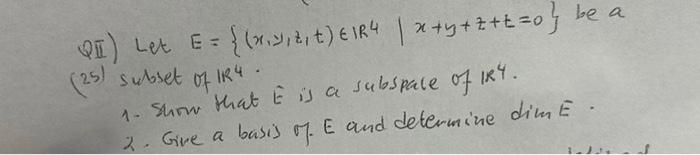 QII) Let E = {(x,y,z,t) ∈ IR4 | x+y+z+t=0} be a
(25) subset of IR4.
1- Show that E is a subspace of IR4.
2. Give a basis of E and determine dim E.